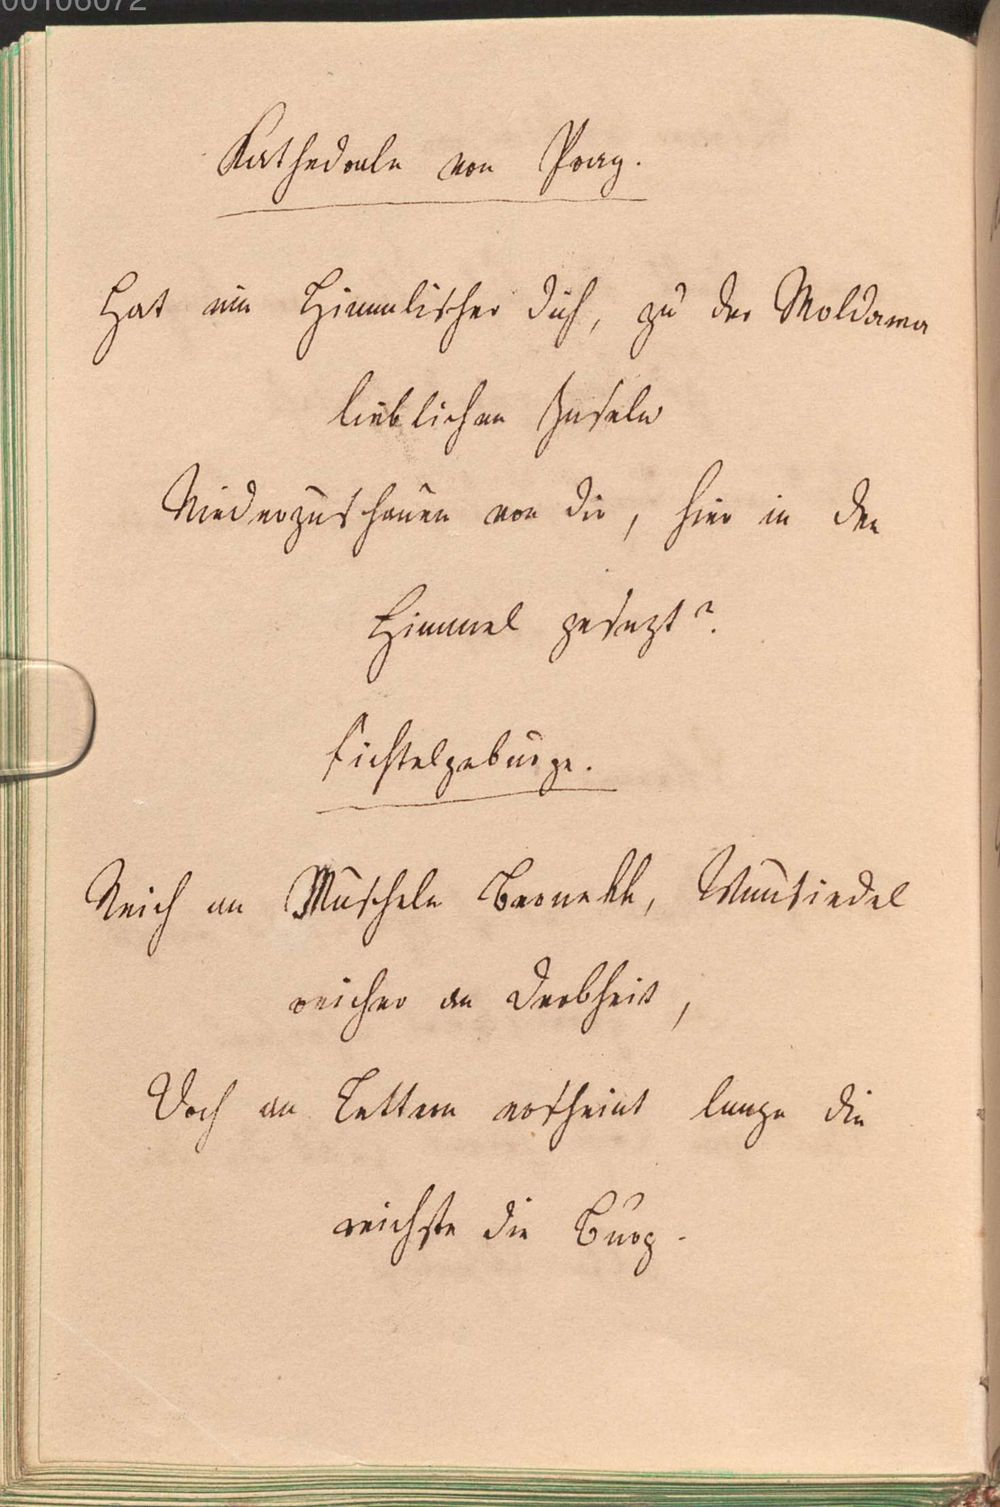 00106072
Kathedrale von Prag.
Hat ein Himmlischer dich, zu der Moldawa
lieblichen Inseln
Niederzuschauen von dir, hier in den
Himmel gesezt?
Fichtelgebürge.
Reich an Muscheln Bernekk, Wunsiedel
reicher an Derbheit,
Doch an Lettern erscheint lange die
reichste die Burg.